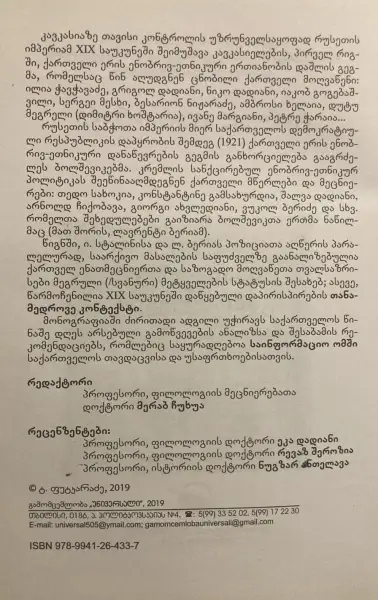 კავკასიაზე თავისი კონტროლის უზრუნველსაყოფად რუსეთის
იმპერიამ XIX საუკუნეში შეიმუშავა კავკასიელების, პირველ რიგ-
ში, ქართველი ერის ენობრივ-ეთნიკური ერთიანობის დაშლის გეგ-
მა, რომელსაც წინ აღუდგნენ ცნობილი ქართველი მოღვაწენი:
ილია ჭავჭავაძე, გრიგოლ დადიანი, ნიკო დადიანი, იაკობ გოგებაშ-
ვილი, სერგეი მესხი, ბესარიონ ნიჟარაძე, ამბროსი ხელაია, დუტუ
მეგრელი (დიმიტრი ხოშტარია), ივანე მარგიანი, პეტრე ჭარაია...
რუსეთის საბჭოთა იმპერიის მიერ საქართველოს დემოკრატიუ-
ლი რესპუბლიკის დაპყრობის შემდეგ (1921) ქართველი ერის ენობ-
რივ-ეთნიკური დანაწევრების გეგმის განხორციელება გააგრძე-
ლეს ბოლშევიკებმა. კრემლის სანქცირებულ ენობრივ-ეთნიკურ
პოლიტიკას შეეწინააღმდეგნენ ქართველი მწერლები და მეცნიე-
რები: თედო სახოკია, კონსტანტინე გამსახურდია, შალვა დადიანი,
არნოლდ ჩიქობავა, გიორგი ახვლედიანი, ვუკოლ ბერიძე და სხვ.
რომელთა შეხედულებები გაიზიარა ბოლშევიკთა ერთმა ნაწილ-
მაც (მათ შორის, ლავრენტი ბერიამ).
წიგნში, ი. სტალინისა და ლ. ბერიას პოზიციათა აღწერის პარა-
ლელურად, საარქივო მასალების საფუძველზე გაანალიზებულია
ქართველ ენათმეცნიერთა და საზოგადო მოღვაწეთა თვალსაზრი-
სები მეგრული (/სვანური) მეტყველების სტატუსის შესახებ; ასევე,
წარმოჩენილია XIX საუკუნეში დაწყებული დაპირისპირების თანა-
მედროვე კონტექსტი.
მონოგრაფიაში ძირითადი ადგილი უჭირავს საქართველოს წი-
ნაშე დღეს არსებული გამოწვევების ანალიზსა და შესაბამის რე-
კომენდაციებს, რომლებიც საყურადღებოა საინფორმაციო ომში
საქართველოს თავდაცვისა და უსაფრთხოებისათვის.
რედაქტორი
პროფესორი, ფილოლოგიის მეცნიერებათა
დოქტორი მერაბ ჩუხუა
რეცენზენტები:
პროფესორი, ფილოლოგიის დოქტორი ეკა დადიანი
პროფესორი, ფილოლოგიის დოქტორი რევაზ შეროზია
პროფესორი, ისტორიის დოქტორი ნუგზარ ანთელავა
© ტ. ფუტკარაძე, 2019
გამომცემლობა „უნივერსალი", 2019
თბილისი, 0186, ა. პოლიტკოვსკაიას №4, ☎: 5(99) 33 52 02, 5(99) 17 22 30
E-mail: universal505@ymail.com; gamomcemlobauniversali@gmail.com
ISBN 978-9941-26-433-7